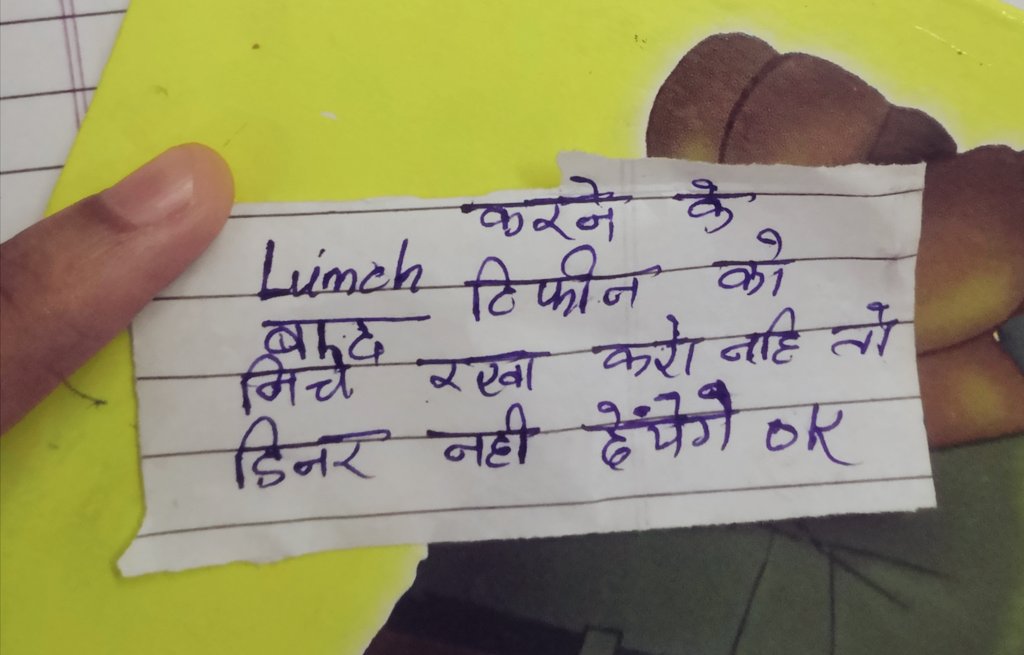 Lunch करने के
बाद टिफीन को
मिचे रखा करो नहि तो
डिनर नही देंयेगे ok